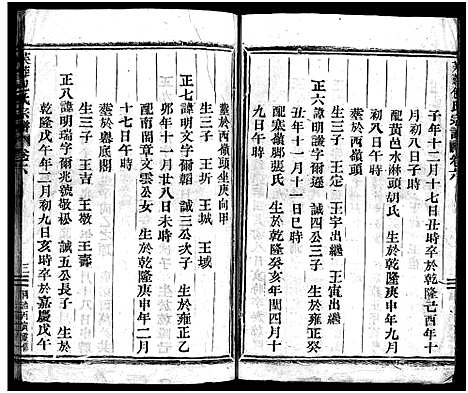 子年十二月十七日丑時卒於乾隆己酉年十
月初八日子時
配黃邑水淋頭胡氏 生於乾隆庚申年九月
初八日午時
生三子 王定 王宇出繼 王寅出繼
正六諱明謨字爾盛 誠四公三子 生於雍正癸
丑年十一月十一日巳時
配塞嶺腳張氏 生於乾隆癸亥年閏四月十
九日午時
葬於西嶺頭坐庚向甲
生三子 王圻 王城 王域
正七諱明文字爾韜 誠三公次子 生於雍正乙
卯年十一月廿八日未時
配南閣章文雲公女 生於乾隆庚申年二月
十七日午時
葬於嶴底閣
生三子 王吉 王墩 王壽
正八諱明瑞字爾兆號敬嵒 誠五公長子 生於
乾隆戊午年二月初九日亥時卒於嘉慶戊午